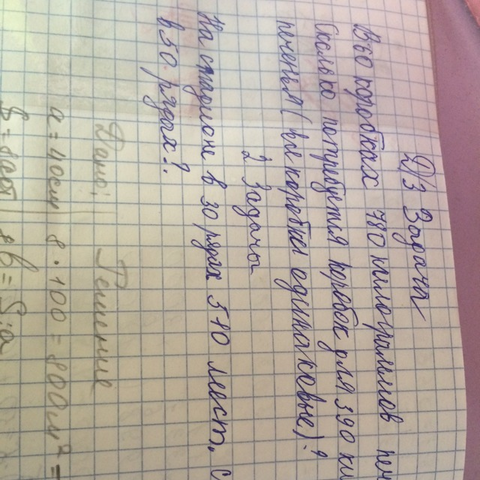 Д/З Задача
В 60 коробках 780 килограммов печ
Сколько потребуется коробок для 390 ки
печенья (все коробки одинаковые)?
2 Задача
На стадионе в 30 рядах 510 мест, С
в 50 рядах?
Дано: Решение
a = 40см 8 · 100 = 800см² =